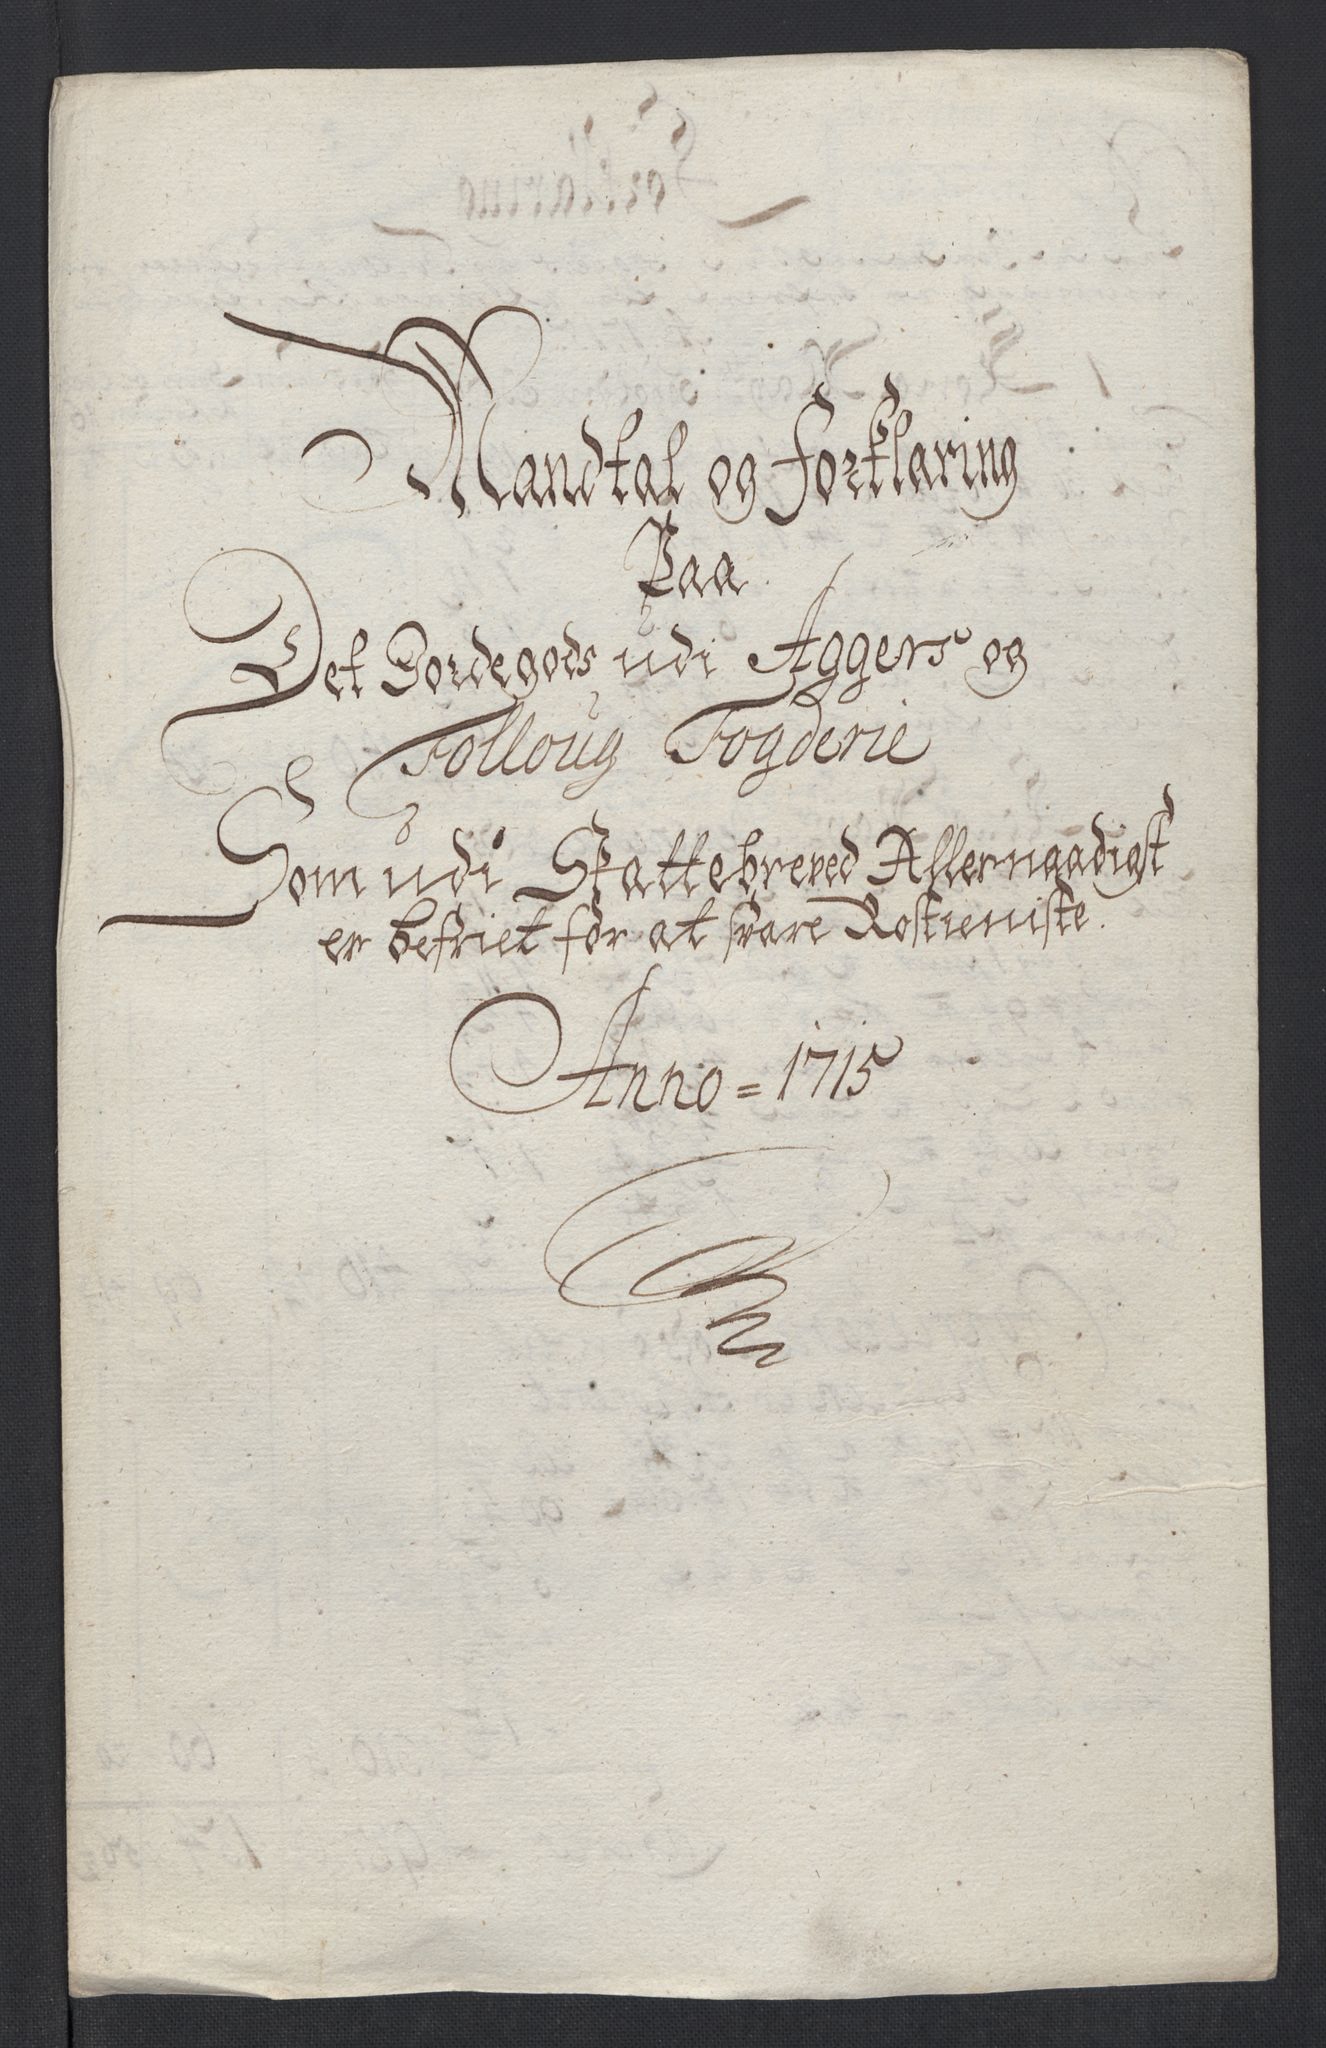 Mandtal og forklaring
Paa
Det Jordegods udi Aggers og
Folloug Fogderie
Som udi Skattebreved Allernaadigst
er befriet for at svare Rostieniste.
Anno = 1715